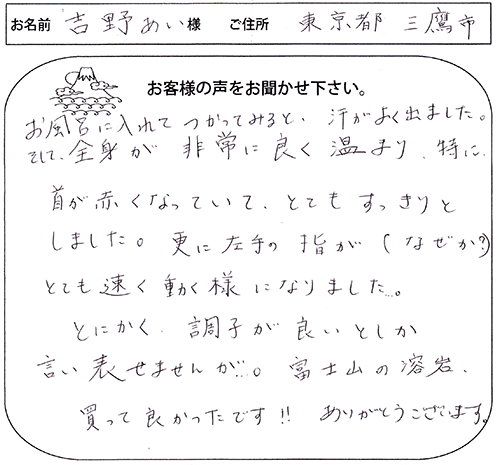 お名前 吉野あい様 ご住所 東京都 三鷹市
お客様の声をお聞かせ下さい。
お風呂に入れてつかってみると、汗がよく出ました。
そして、全身が非常に良く温まり、特に、
首が赤くなっていて、とてもすっきりと
しました。更に左手の指が(なぜか?)
とても速く動く様になりました…。
とにかく、調子が良いとしか
言い表せませんが…。富士山の溶岩、
買って良かったです!! ありがとうございます。